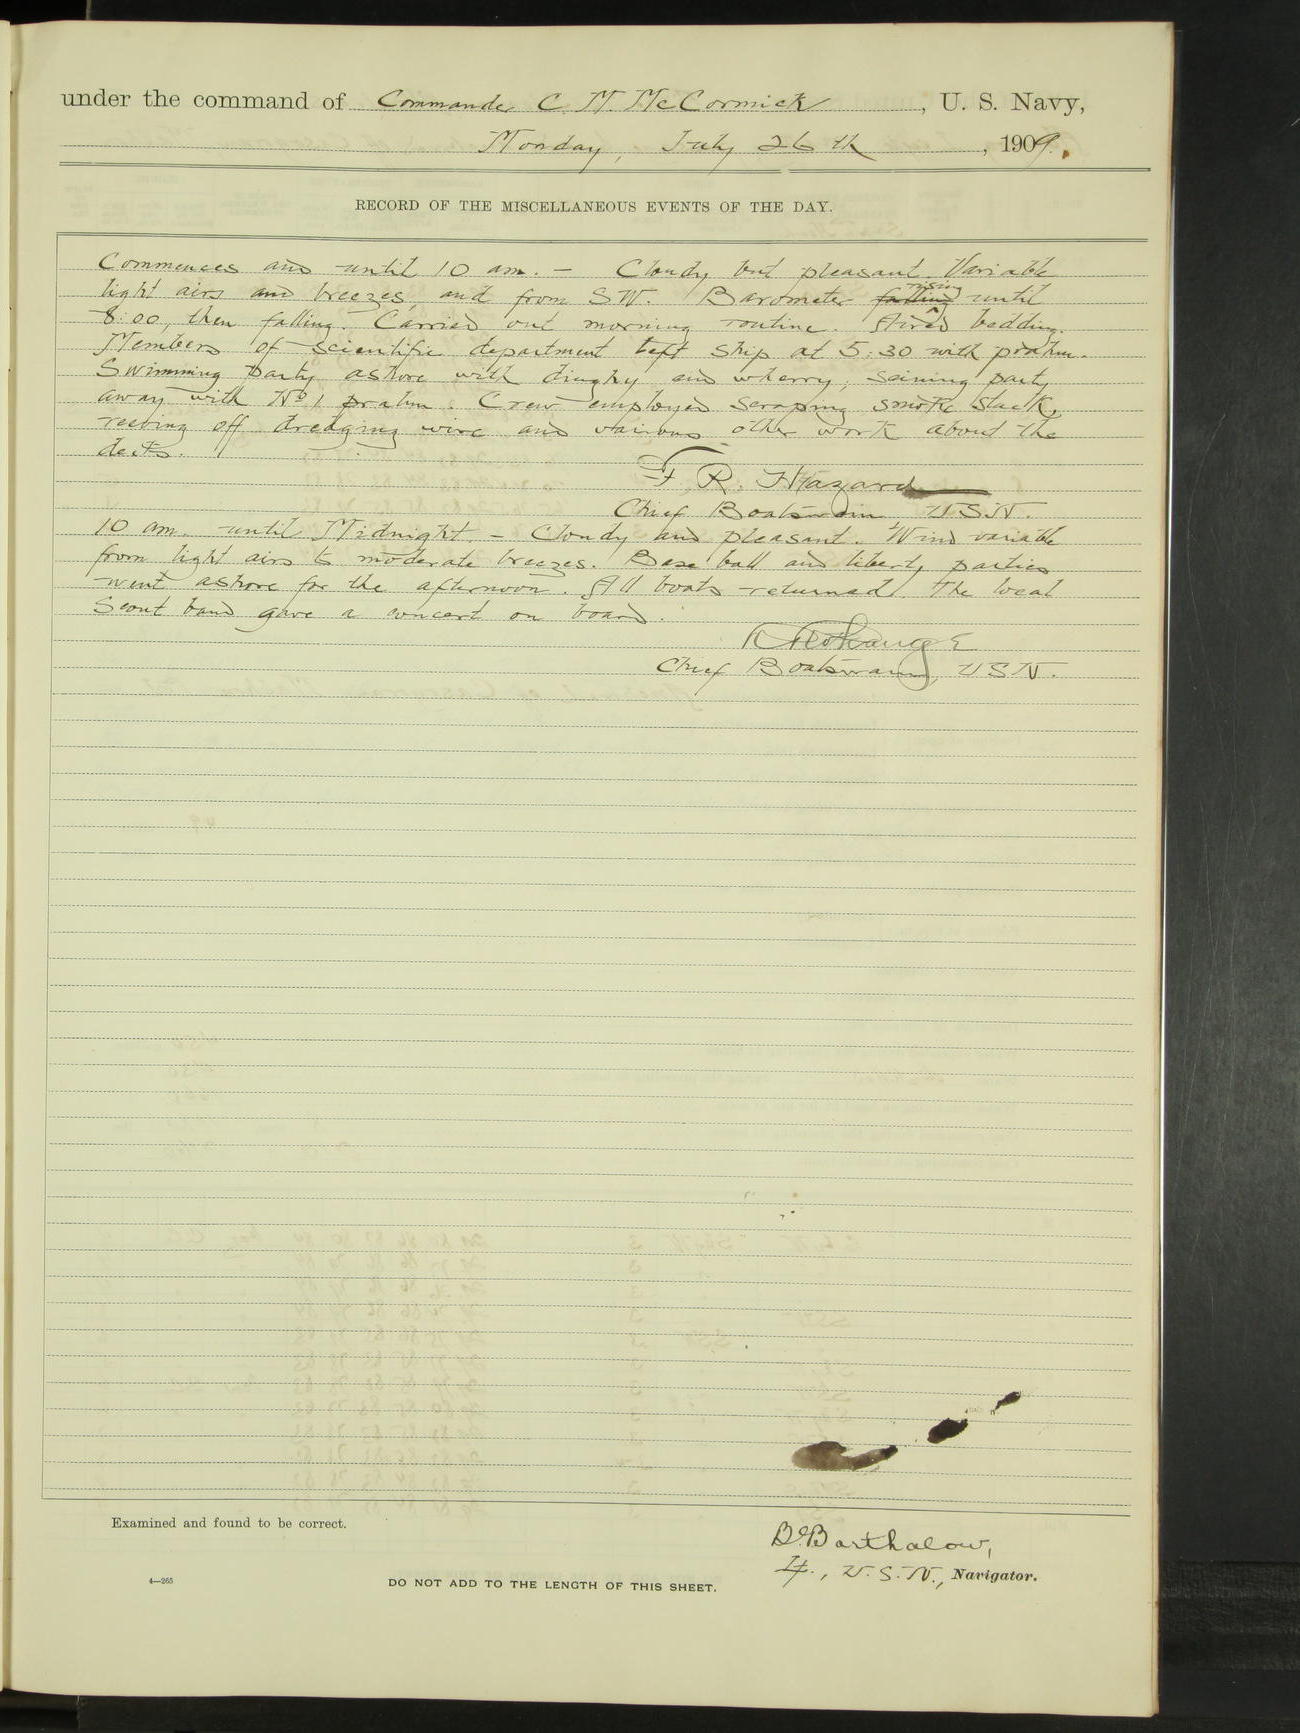 under the command of Commander C. M. McCormick, U. S. Navy,
Monday, July 26th, 1909.
RECORD OF THE MISCELLANEOUS EVENTS OF THE DAY.
Commences and until 10 am. — Cloudy but pleasant. Variable
light airs and breezes, and from SW. Barometer falling rising until
8:00, then falling. Carried out morning routine. Aired bedding.
Members of scientific department left ship at 5:30 with prahm.
Swimming party ashore with dinghy and wherry; seining party
away with No 1 prahm. Crew employed scraping smoke stack,
reeling off dredging wire and various other work about the
decks.
F. R. Hazard
Chief Boatswain USN.
10 am. until Midnight. — Cloudy and pleasant. Wind variable
from light airs to moderate breezes. Base ball and liberty parties
went ashore for the afternoon. All boats returned. The local
Scout band gave a concert on board.
Chief Boatswain, USN.
Examined and found to be correct.
B Barthalow,
Lt., U.S.N., Navigator.
4—265
DO NOT ADD TO THE LENGTH OF THIS SHEET.